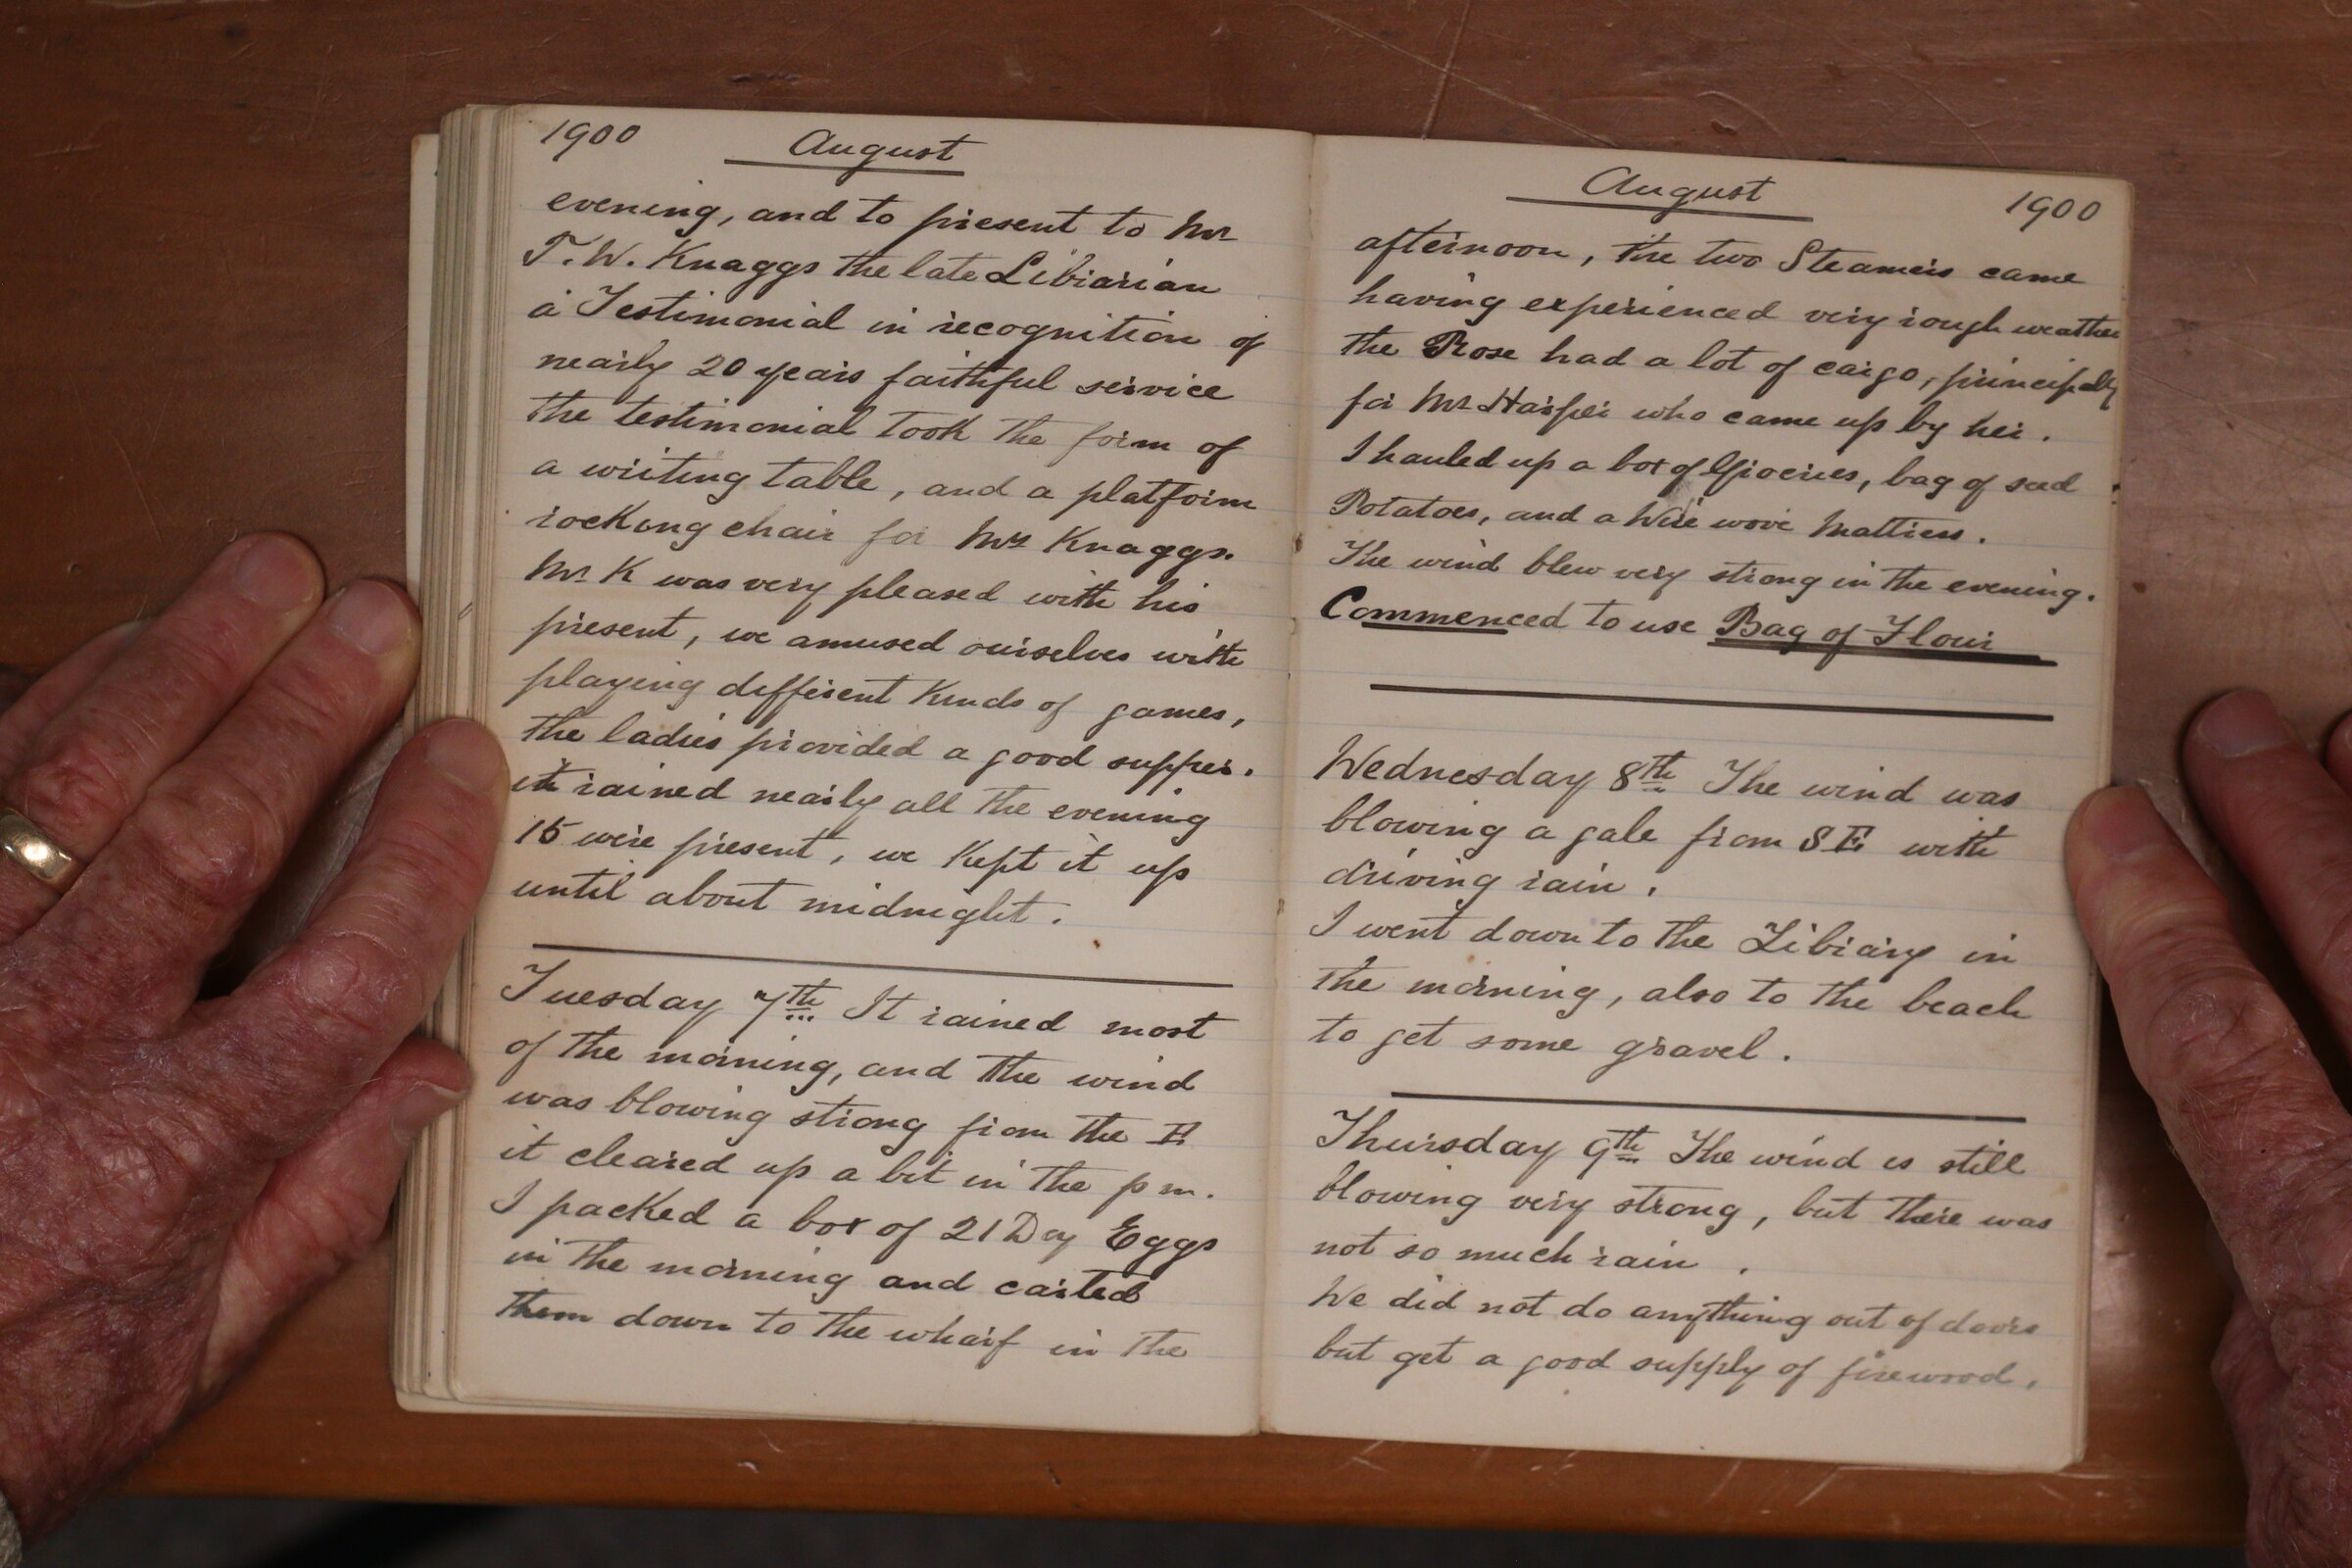 1900 August
evening, and to present to Mr
T. W. Knaggs the late Librarian
a Testimonial in recognition of
nearly 20 years faithful service
the testimonial took the form of
a writing table, and a platform
rocking chair for Mrs Knaggs.
Mr K was very pleased with his
present, we amused ourselves with
playing different kinds of games,
the ladies provided a good supper.
it rained nearly all the evening
15 were present, we kept it up
until about midnight.
Tuesday 7th It rained most
of the morning, and the wind
was blowing strong from the E
it cleared up a bit in the p m.
I packed a box of 21 Doz Eggs
in the morning and carted
them down to the wharf in the
August 1900
afternoon, the two Steamers came
having experienced very rough weather
the Rose had a lot of cargo, principally
for Mr Harper who came up by her.
I hauled up a box of Groceries, bag of seed
Potatoes, and a Wire wove Mattress.
The wind blew very strong in the evening.
Commenced to use Bag of Flour
Wednesday 8th The wind was
blowing a gale from SE with
driving rain.
I went down to the Library in
the morning, also to the beach
to get some gravel.
Thursday 9th The wind is still
blowing very strong, but there was
not so much rain.
We did not do anything out of doors
but get a good supply of firewood.